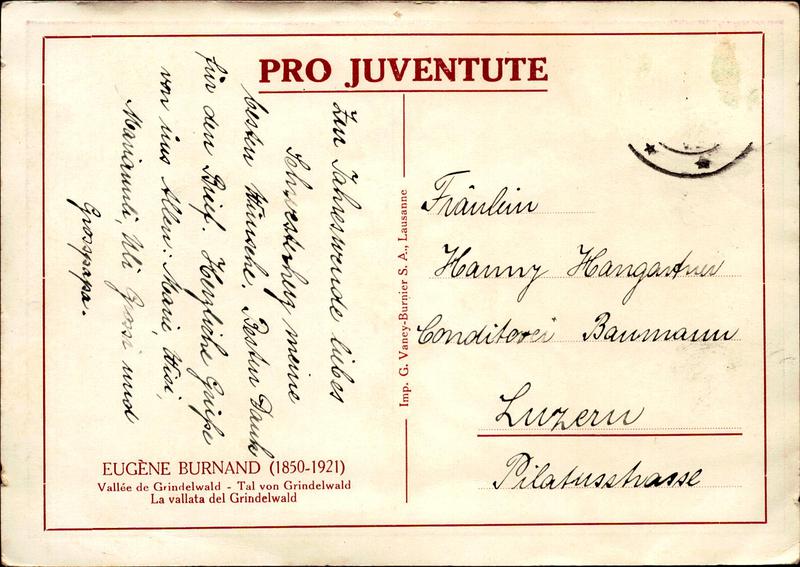 PRO JUVENTUTE
Zur Jahreswende liebes
Schwesterherz meine
besten Wünsche. Besten Dank
für den Brief. Herzliche Grüsse
von uns Allen: Marie, Wisi,
Mariannli, Uli Grossi und
Grosspapa.
EUGÈNE BURNAND (1850-1921)
Vallée de Grindelwald - Tal von Grindelwald
La vallata del Grindelwald
Imp. G. Vaney-Burnier S. A., Lausanne
Fräulein
Hanny Hangartner
Conditorei Baumann
Luzern
Pilatusstrasse